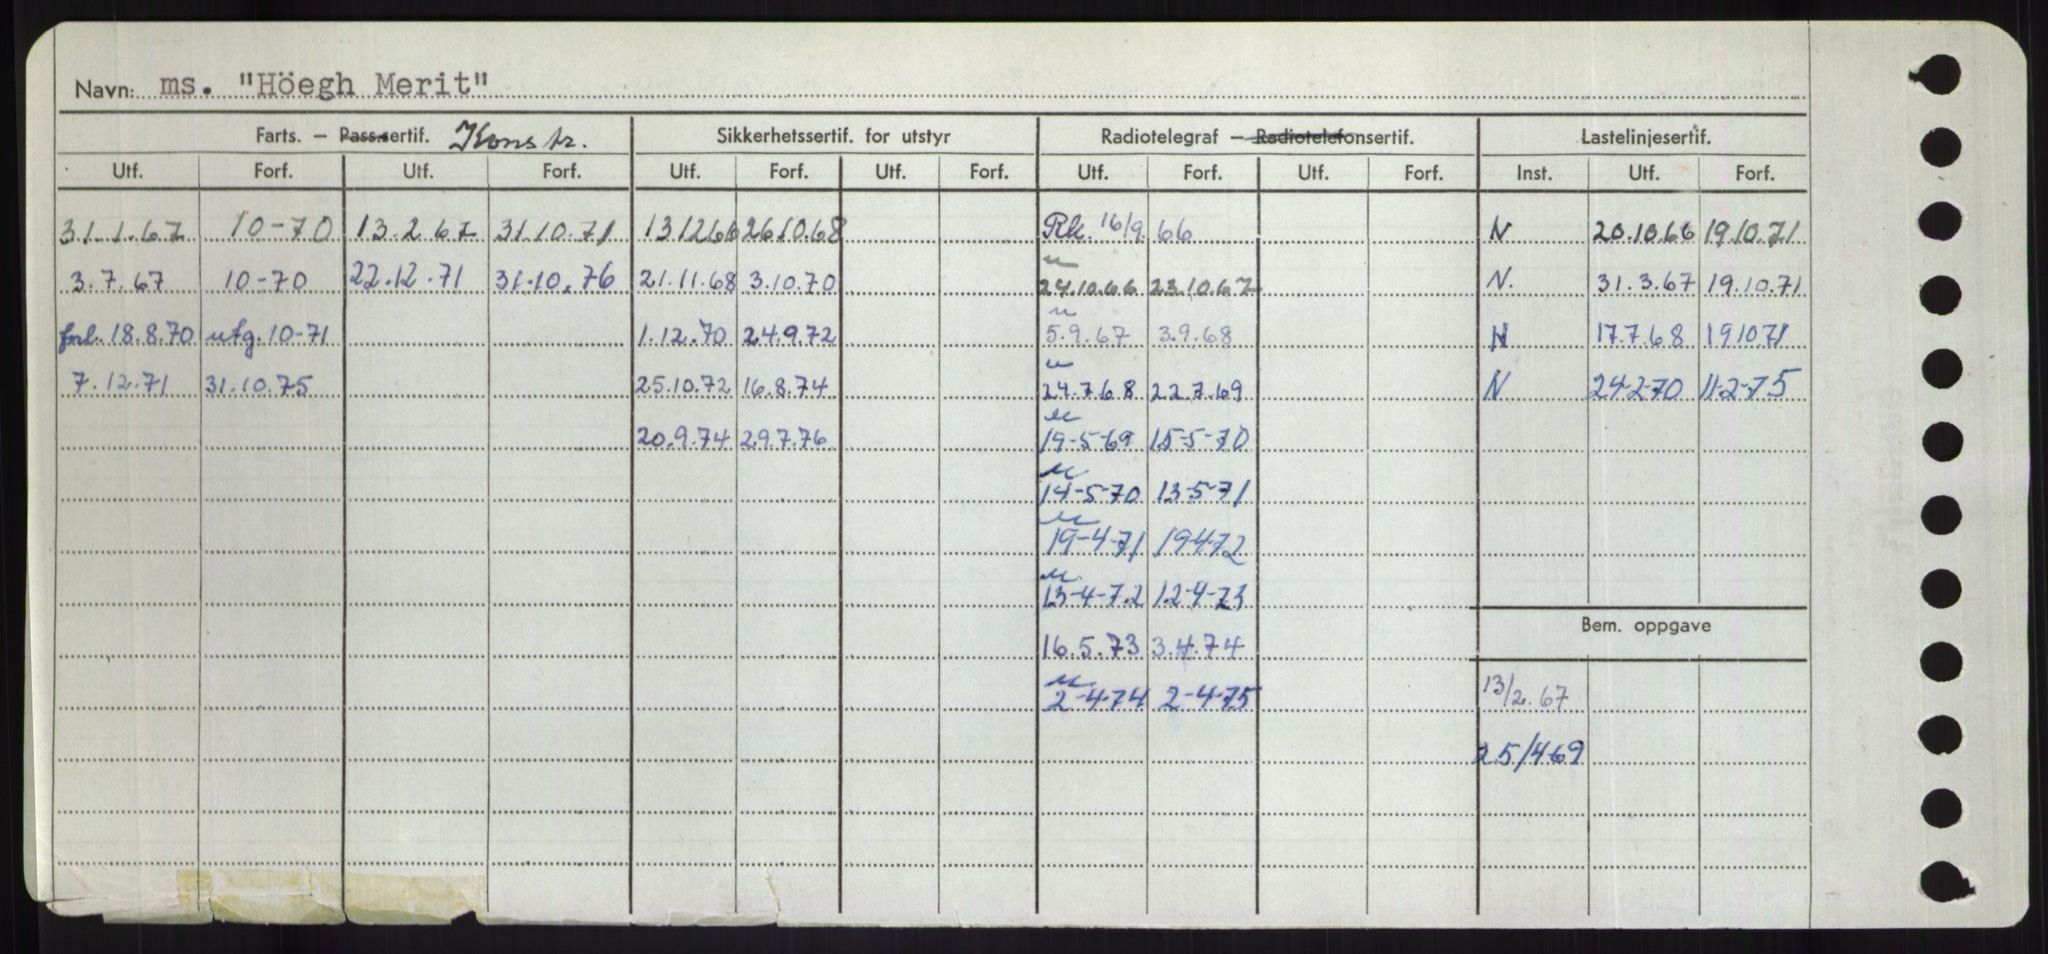 Navn: ms. "Höegh Merit"
Farts. – Pass.sertif. Konstr. Sikkerhetssertif. for utstyr Radiotelegraf – Radiotelefonsertif. Lastelinjesertif.
Utf. Forf. Utf. Forf. Utf. Forf. Utf. Forf. Utf. Forf. Utf. Forf. Inst. Utf. Forf.
31.1.67 10-70 13.2.67 31.10.71 13.12.66 26.10.68 Rk. 16/9.66 N 20.10.66 19.10.71
3.7.67 10-70 22.12.71 31.10.76 21.11.68 3.10.70 24.10.66 23.10.67 N. 31.3.67 19.10.71
forl. 18.8.70 utg. 10-71 1.12.70 24.9.72 5.9.67 3.9.68 N 17.7.68 19.10.71
7.12.71 31.10.75 25.10.72 16.8.74 24.7.68 22.7.69 N 24-2-70 11-2-75
20.9.74 29.7.76 19-5-69 15-5-70
14-5-70 13-5-71
19-4-71 19-4-72
13-4-72 12-4-73
Bem. oppgave
16.5.73 3.4.74
2-4-74 2-4-75 13/2.67
25/4 69